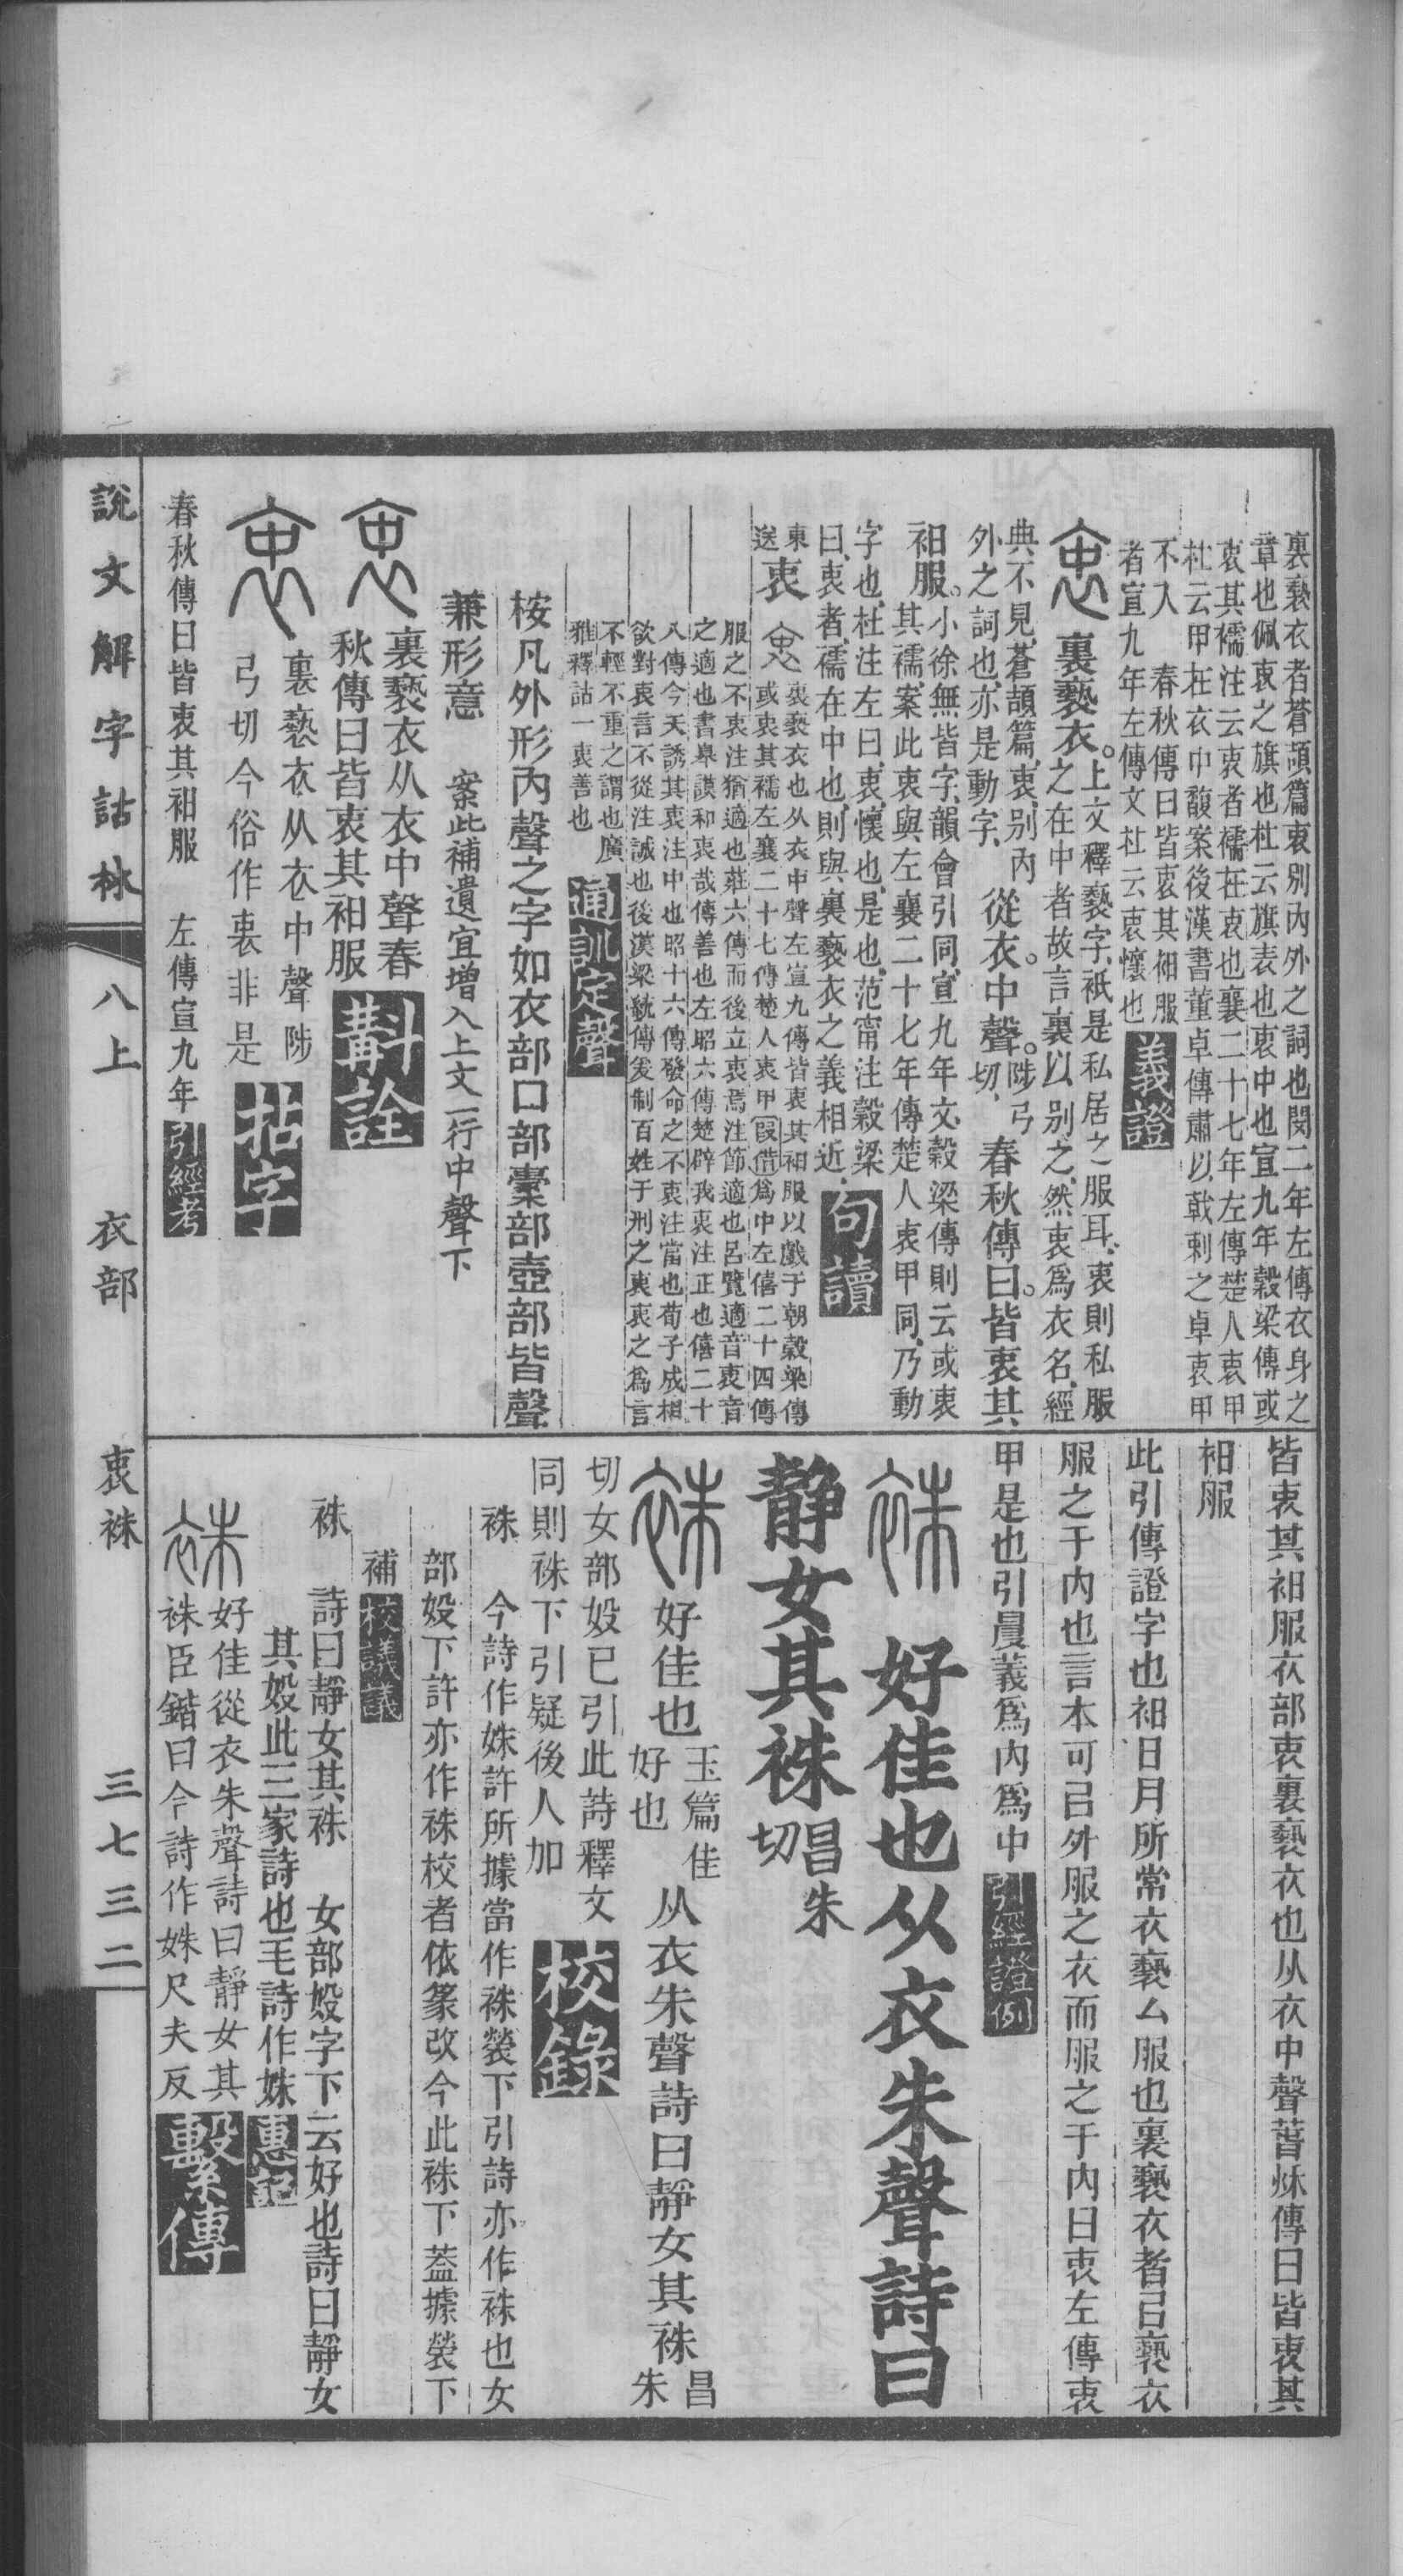 裏褻衣者蒼頡篇衷別內外之詞也閔二年左傳衣身之
章也佩衷之旗也杜云旗表也衷中也宣九年穀梁傳或
衷其襦注云衷者襦在衷也襄二十七年左傳楚人衷甲
杜云甲在衣中馥案後漢書董卓傳肅以戟刺之卓衷甲
不入　春秋傳曰皆衷其衵服
者宣九年左傳文杜云衷懷也
義證
裏褻衣。
上文釋褻字、衹是私居之服耳、衷則私服
之在中者、故言裏以別之、然衷爲衣名、經
典不見、蒼頡篇、衷、別內
外之詞也、亦是動字、
從衣。中聲。
陟弓
切、
春秋傳曰。皆衷其
衵服。
小徐無皆字、韻會引同、宣九年文、穀梁傳則云或衷
其襦、案此衷與左襄二十七年傳楚人衷甲同、乃動
字也、杜注左曰、衷、懷也、是也、范甯注穀梁
曰、衷者、襦在中也、則與裏褻衣之義相近、
句讀
東
送
衷
裏褻衣也从衣中聲左宣九傳皆衷其衵服以戲于朝穀梁傳
或衷其襦左襄二十七傳楚人衷甲叚借爲中左僖二十四傳
服之不衷注猶適也莊六傳而後立衷焉注節適也呂覽適音衷音
之適也書皋謨和衷哉傳善也左昭六傳楚辟我衷注正也僖二十
八傳今天誘其衷注中也昭十六傳發命之不衷注當也荀子成相
欲對衷言不從注誠也後漢梁統傳爰制百姓于刑之衷衷之爲言
不輕不重之謂也廣
雅釋詁一衷善也
通訓定聲
桉凡外形內聲之字如衣部口部橐部壺部皆聲
兼形意　案此補遺宜增入上文一行中聲下
裏褻衣从衣中聲春
秋傳曰皆衷其衵服
斠詮
裏褻衣从衣中聲陟
弓切今俗作裏非是
拈字
春秋傳曰皆衷其衵服　左傳宣九年
引經考
皆衷其衵服衣部衷裏褻衣也从衣中聲萅秌傳曰皆衷其
衵服
此引傳證字也衵日月所常衣褻厶服也裏褻衣者㠯褻衣
服之于內也言本可㠯外服之衣而服之于內曰衷左傳衷
甲是也引㬪義爲內爲中
引經證例
好佳也从衣朱聲詩曰
靜女其袾
昌朱
切
好佳也
玉篇佳
好也
从衣朱聲詩曰靜女其袾
昌
朱
切女部㛮已引此詩釋文
同則袾下引疑後人加
校錄
袾　今詩作姝許所據當作袾褮下引詩亦作袾也女
部㛮下許亦作袾校者依篆改今此袾下葢據褮下
補
校議議
袾　詩曰靜女其袾　女部㛮字下云好也詩曰靜女
其㛮此三家詩也毛詩作姝
惠記
好佳從衣朱聲詩曰靜女其
袾臣鍇曰今詩作姝尺夫反
繫傳
說文解字詁林　八上　衣部　衷袾　三七三二